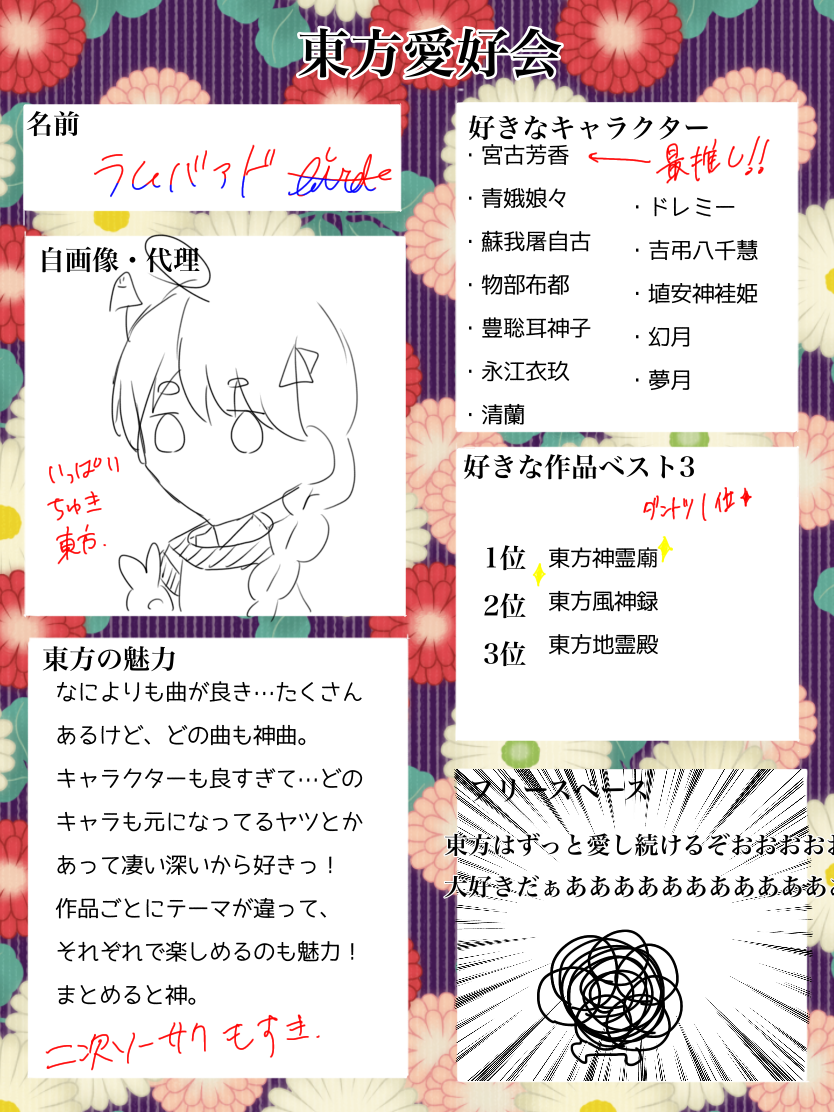 東方愛好会
名前
ラムバァド
自画像・代理
いっぱい
ちゅき
東方.
東方の魅力
なによりも曲が良き…たくさん
あるけど、どの曲も神曲。
キャラクターも良すぎて…どの
キャラも元になってるヤツとか
あって凄い深いから好きっ！
作品ごとにテーマが違って、
それぞれで楽しめるのも魅力！
まとめると神。
二次ソーサクもすき.
好きなキャラクター
・宮古芳香 ← 最推し!!
・青娥娘々
・蘇我屠自古
・物部布都
・豊聡耳神子
・永江衣玖
・清蘭
・ドレミー
・吉弔八千慧
・埴安神袿姫
・幻月
・夢月
好きな作品ベスト3
ダントツ1位
1位 東方神霊廟
2位 東方風神録
3位 東方地霊殿
フリースペース
東方はずっと愛し続けるぞおおおおお
大好きだぁあああああああああああ